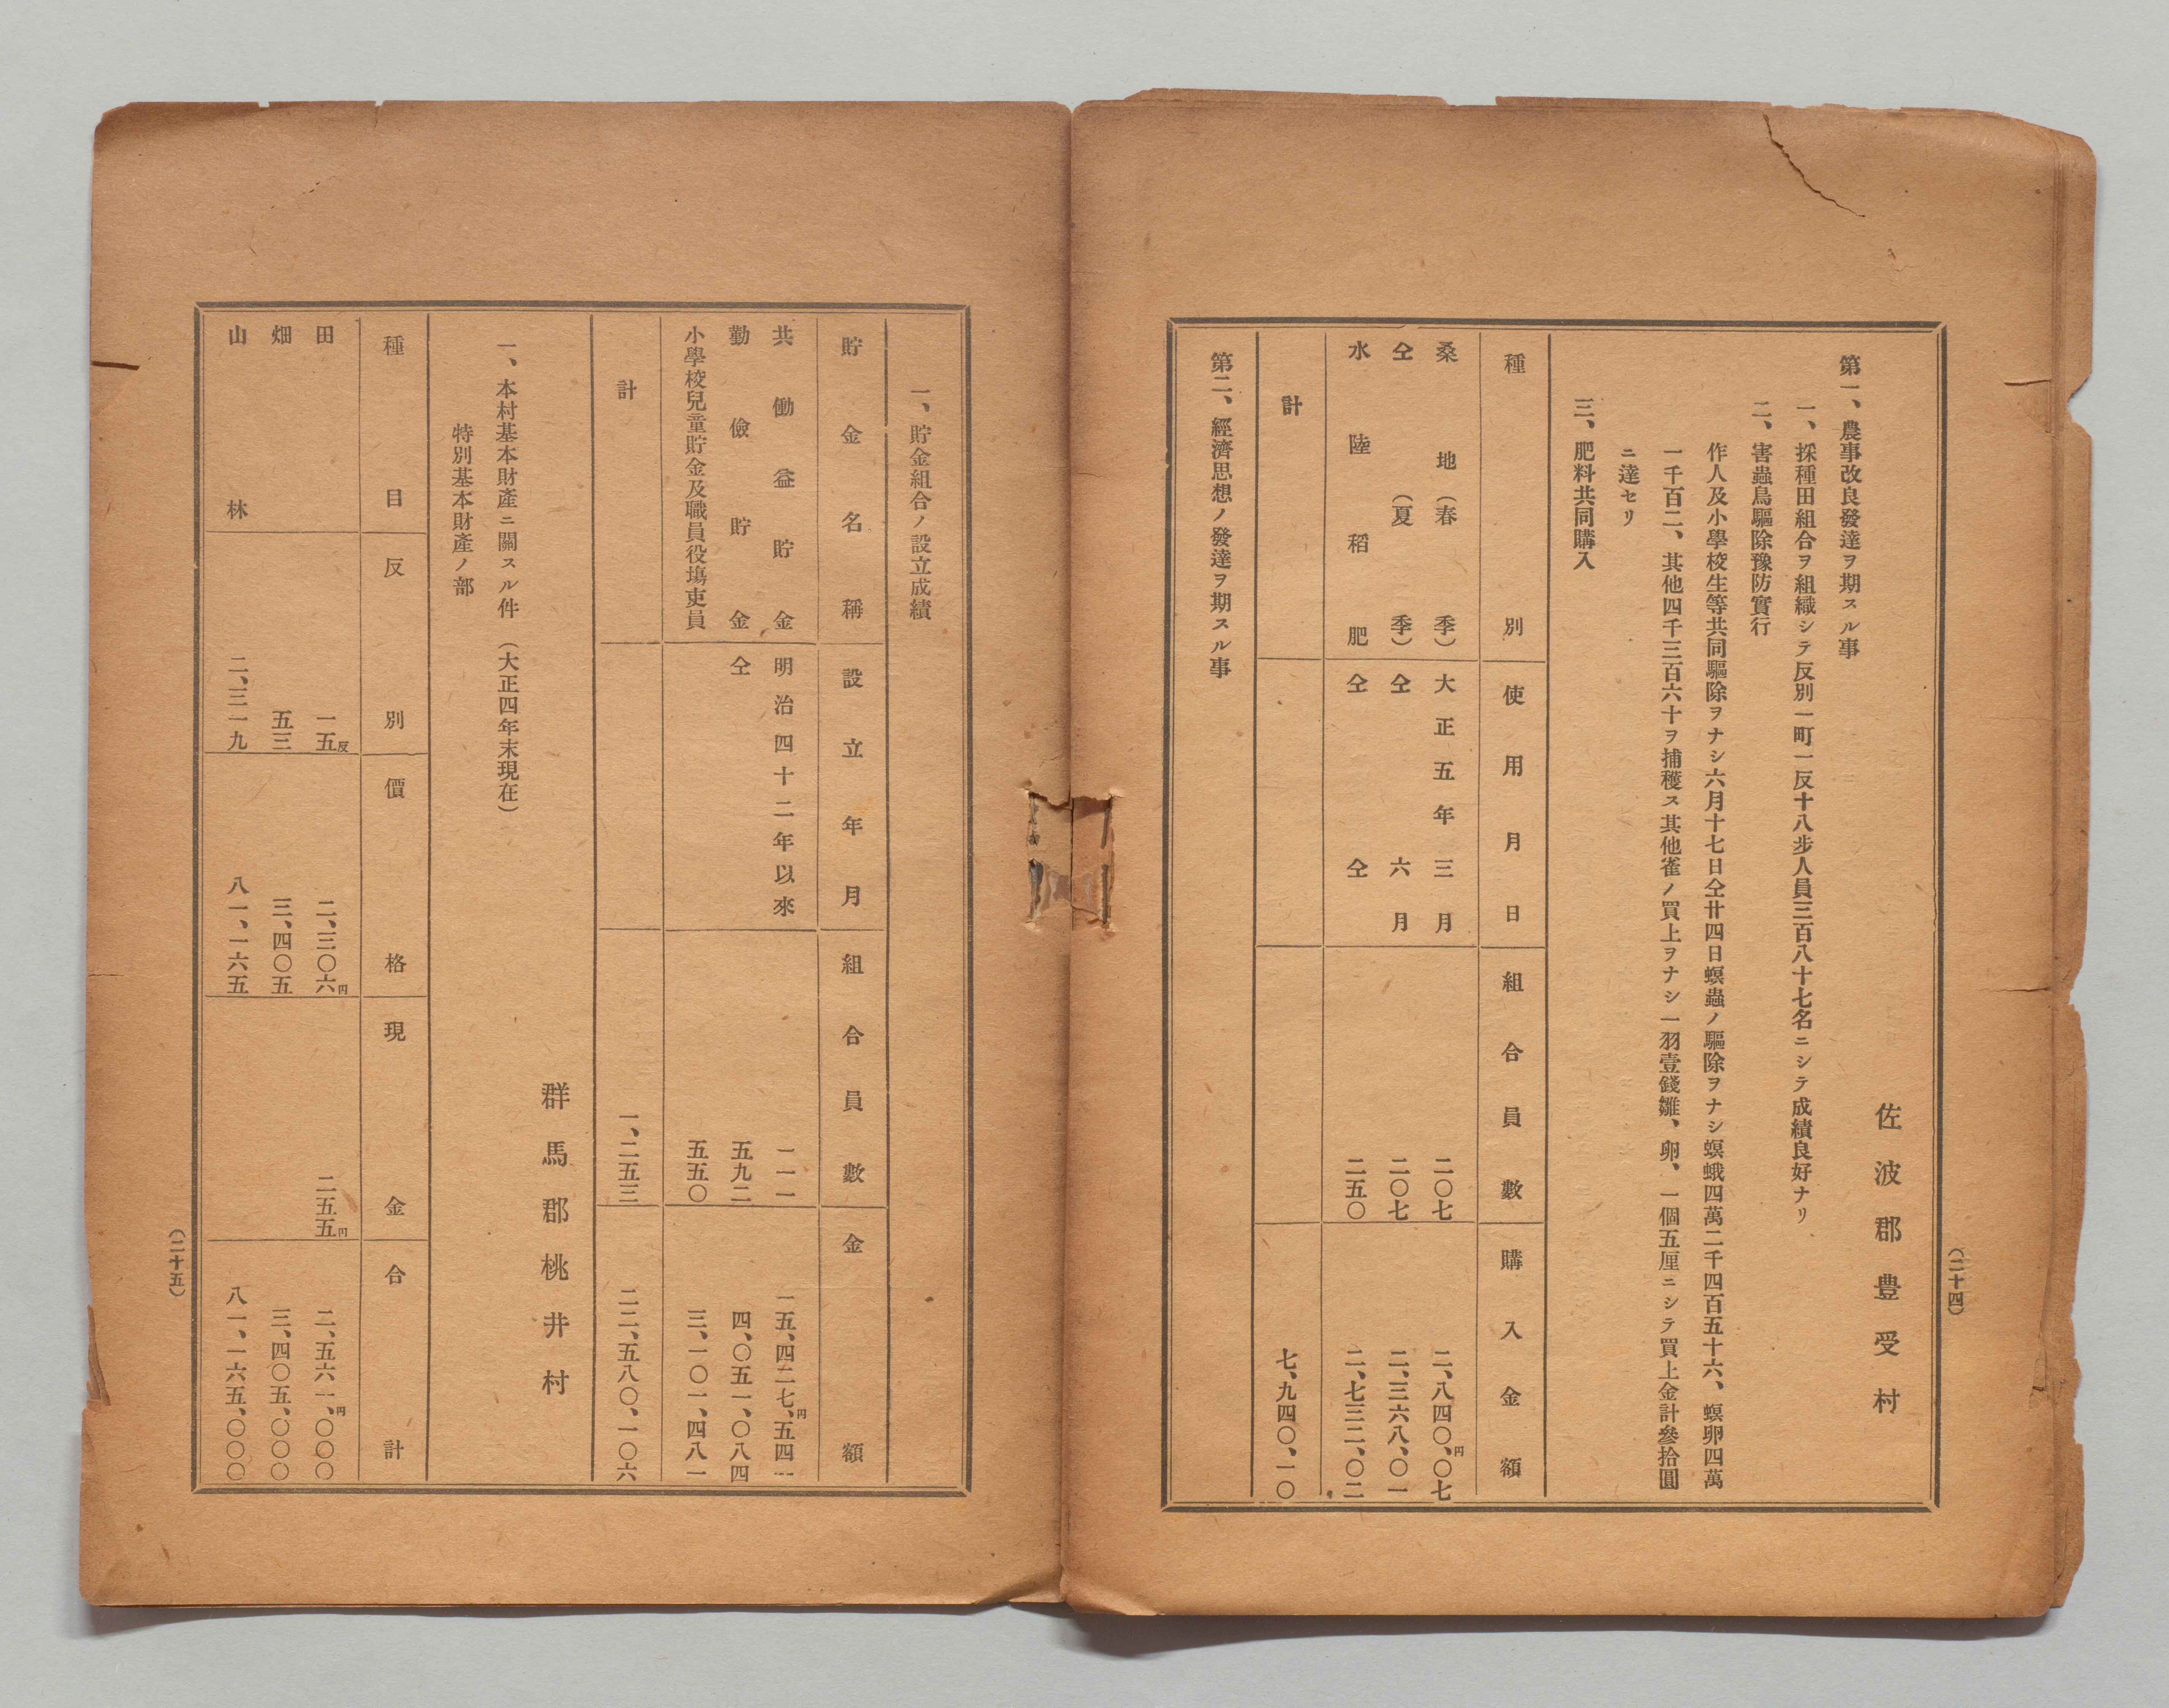 (二十四)
佐波郡豊受村
第一、農事改良發達ヲ期スル事
一、採種田組合ヲ組織シテ反別一町一反十八步人員三百八十七名ニシテ成績良好ナリ
二、害蟲鳥驅除豫防實行
作人及小學校生等共同驅除ヲナシ六月十七日仝廿四日螟蟲ノ驅除ヲナシ螟蛾四萬二千四百五十六、螟卵四萬
一千百二、其他四千三百六十ヲ捕穫ス其他雀ノ買上ヲナシ一羽壹錢雛、卵、一個五厘ニシテ買上金計參拾圓
ニ達セリ
三、肥料共同購入
種別 使用月日 組合員數 購入金額
桑地(春季) 大正五年三月 二〇七 二、八四〇、〇七円
仝(夏季) 仝六月 二〇七 二、三六八、〇一
水陸稻肥 仝仝 二五〇 二、七三二、〇二
計 七、九四〇、一〇
第二、經濟思想ノ發達ヲ期スル事
一、貯金組合ノ設立成績
貯金名稱 設立年月 組合員數 金額
共働益貯金 明治四十二年以來 一一一 一五、四二七、五四一円
勤儉貯金 仝 五九二 四、〇五一、〇八四
小學校兒童貯金及職員役塲吏員 五五〇 三、一〇一、四八一
計 一、二五三 二二、五八〇、一〇六
群馬郡桃井村
一、本村基本財產ニ關スル件(大正四年末現在)
特別基本財產ノ部
種目 反別 價格 現金 合計
田 一五反 二、三〇六円 二五五円 二、五六一、〇〇〇円
畑 五三 三、四〇五 三、四〇五、〇〇〇
山林 二、三一九 八一、一六五 八一、一六五、〇〇〇
(二十五)